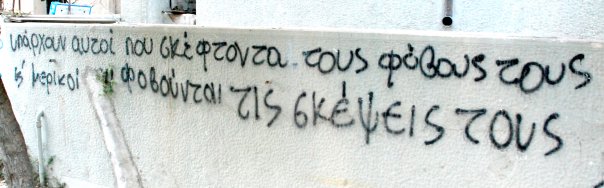 υπάρχουν αυτοί που σκέφτοντα. τους φόβους τους
κ' μερικοί φοβούνται τις σκέψεις τους